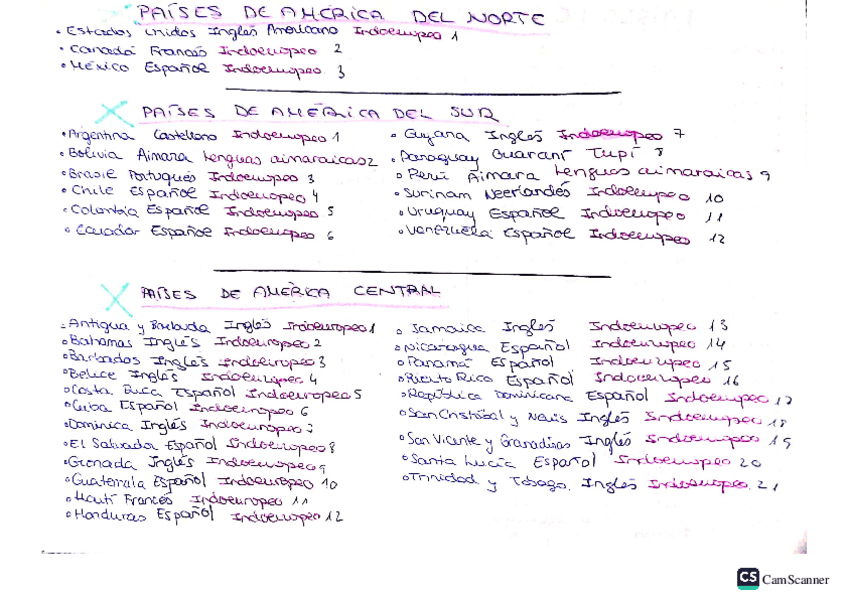 PAÍSES DE AMÉRICA DEL NORTE
• Estados unidos Inglés Americano Indoeuropeo 1
• Canadá Francés Indoeuropeo 2
• México Español Indoeuropeo 3
PAÍSES DE AMÉRICA DEL SUR
• Argentina Castellano Indoeuropeo 1
• Bolivia Aimara Lenguas aimaraicas 2
• Brasil Portugués Indoeuropeo 3
• Chile Español Indoeuropeo 4
• Colombia Español Indoeuropeo 5
• Ecuador Español Indoeuropeo 6
• Guyana Inglés Indoeuropeo 7
• Paraguay Guaraní Tupí 8
• Perú Aimara Lenguas aimaraicas 9
• Surinam Neerlandés Indoeuropeo 10
• Uruguay Español Indoeuropeo 11
• Venezuela Español Indoeuropeo 12
PAÍSES DE AMÉRICA CENTRAL
• Antigua y Barbuda Inglés Indoeuropeo 1
• Bahamas Inglés Indoeuropeo 2
• Barbados Inglés Indoeuropeo 3
• Belice Inglés Indoeuropeo 4
• Costa Rica Español Indoeuropeo 5
• Cuba Español Indoeuropeo 6
• Dominica Inglés Indoeuropeo 7
• El Salvador Español Indoeuropeo 8
• Grenada Inglés Indoeuropeo 9
• Guatemala Español Indoeuropeo 10
• Haití Francés Indoeuropeo 11
• Honduras Español Indoeuropeo 12
• Jamaica Inglés Indoeuropeo 13
• Nicaragua Español Indoeuropeo 14
• Panamá Español Indoeuropeo 15
• Puerto Rico Español Indoeuropeo 16
• República Dominicana Español Indoeuropeo 17
• San Cristóbal y Nevis Inglés Indoeuropeo 18
• San Vicente y Granadinas Inglés Indoeuropeo 19
• Santa Lucía Español Indoeuropeo 20
• Trinidad y Tobago. Inglés Indoeuropeo 21
CS CamScanner